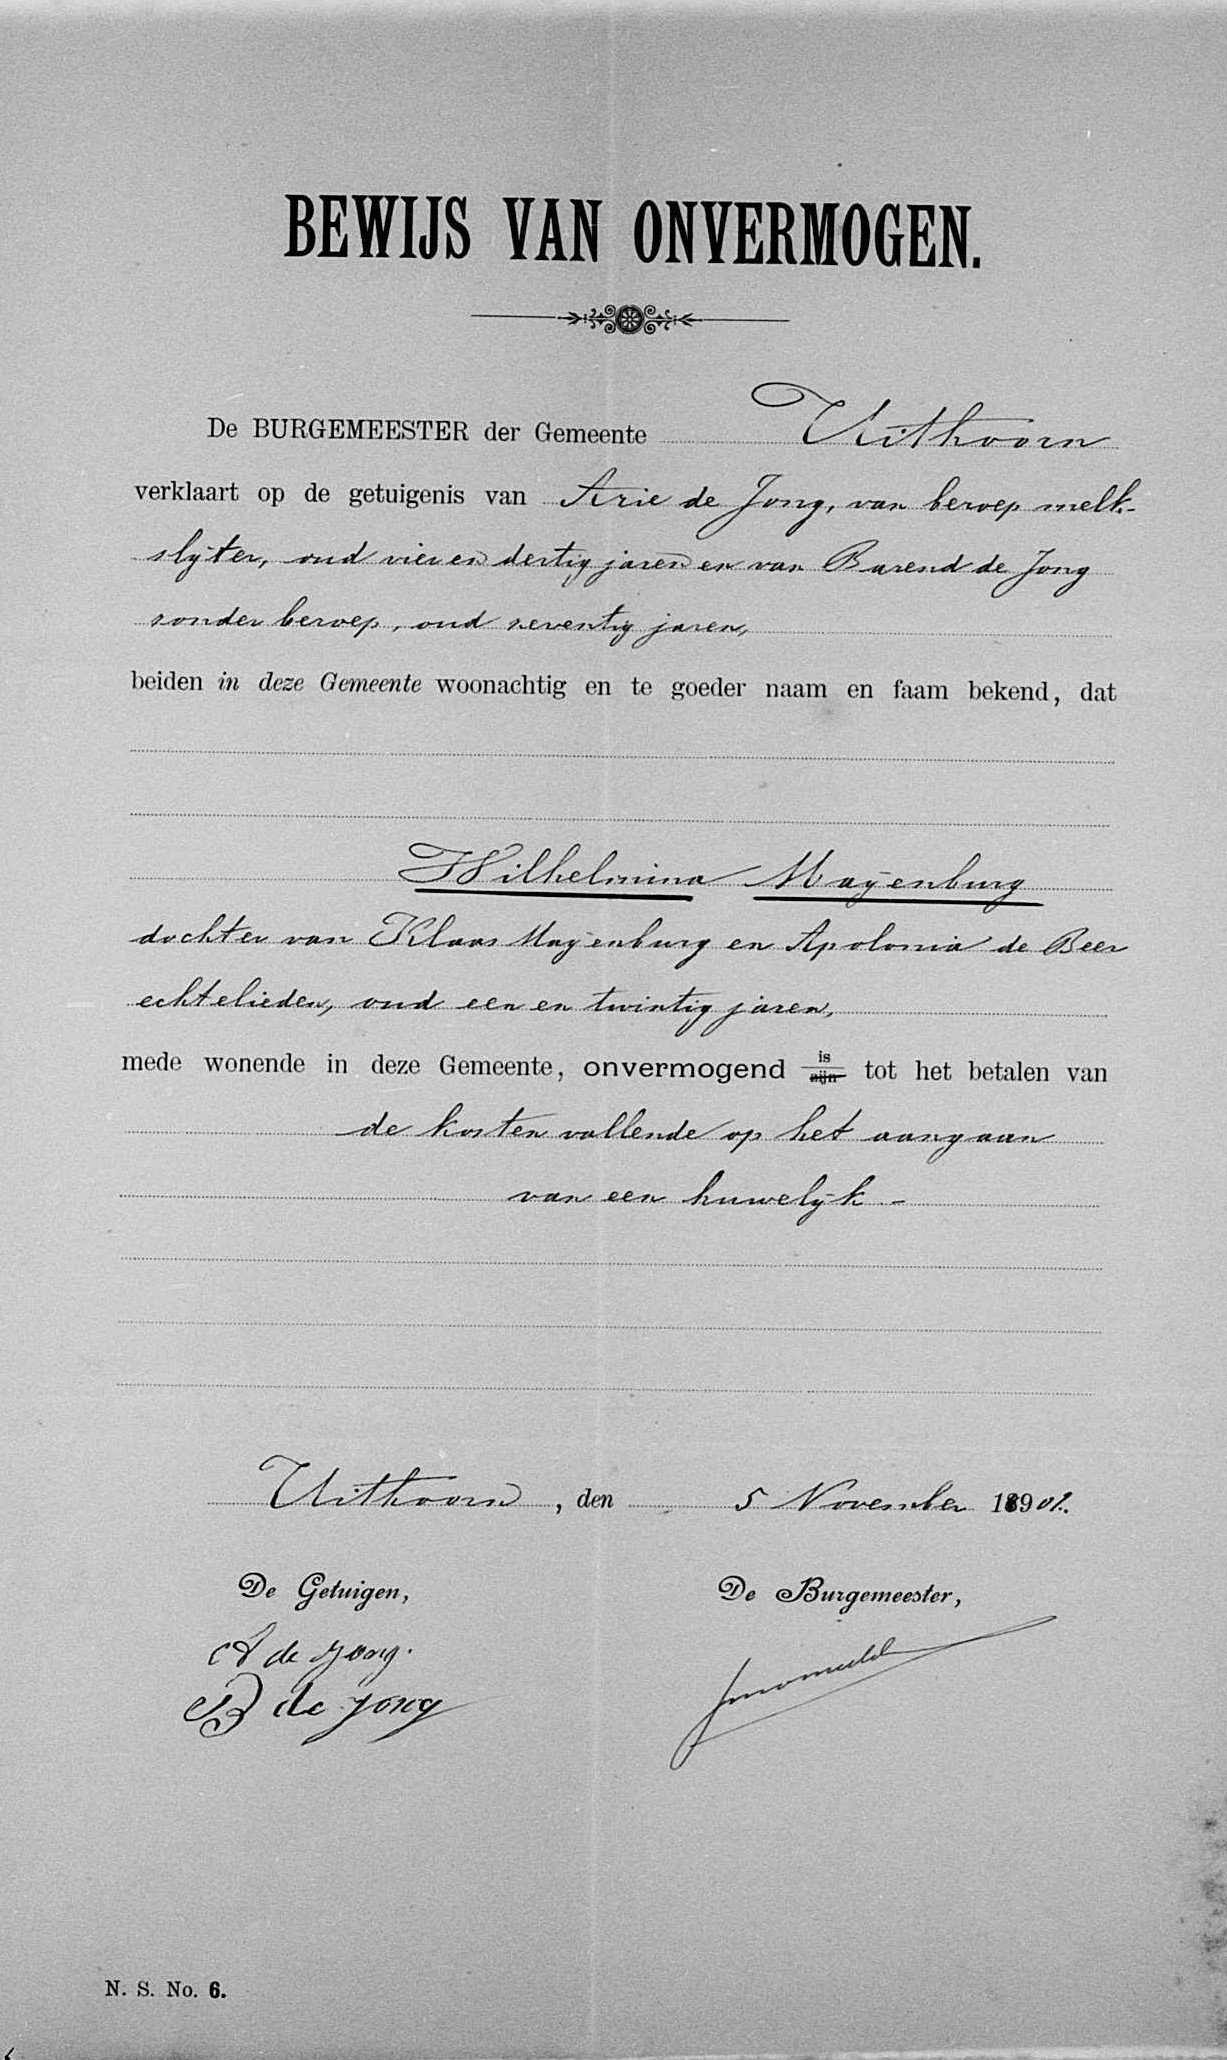 BEWIJS VAN ONVERMOGEN.
De BURGEMEESTER der Gemeente Uithoorn
verklaart op de getuigenis van Arie de Jong, van beroep melk-
slyter, oud vier en dertig jaren en van Barend de Jong
zonder beroep, oud zeventig jaren,
beiden in deze Gemeente woonachtig en te goeder naam en faam bekend, dat
Wilhelmina Mayenburg
dochter van Klaas Mayenburg en Apolonia de Beer
echtelieden, oud een en twintig jaren,
mede wonende in deze Gemeente, onvermogend is zijn tot het betalen van
de kosten vallende op het aangaan
van een huwelyk -
Uithoorn, den 5 November 1901.
De Getuigen, De Burgemeester,
A de Jong.
B de Jong
N. S. No. 6.